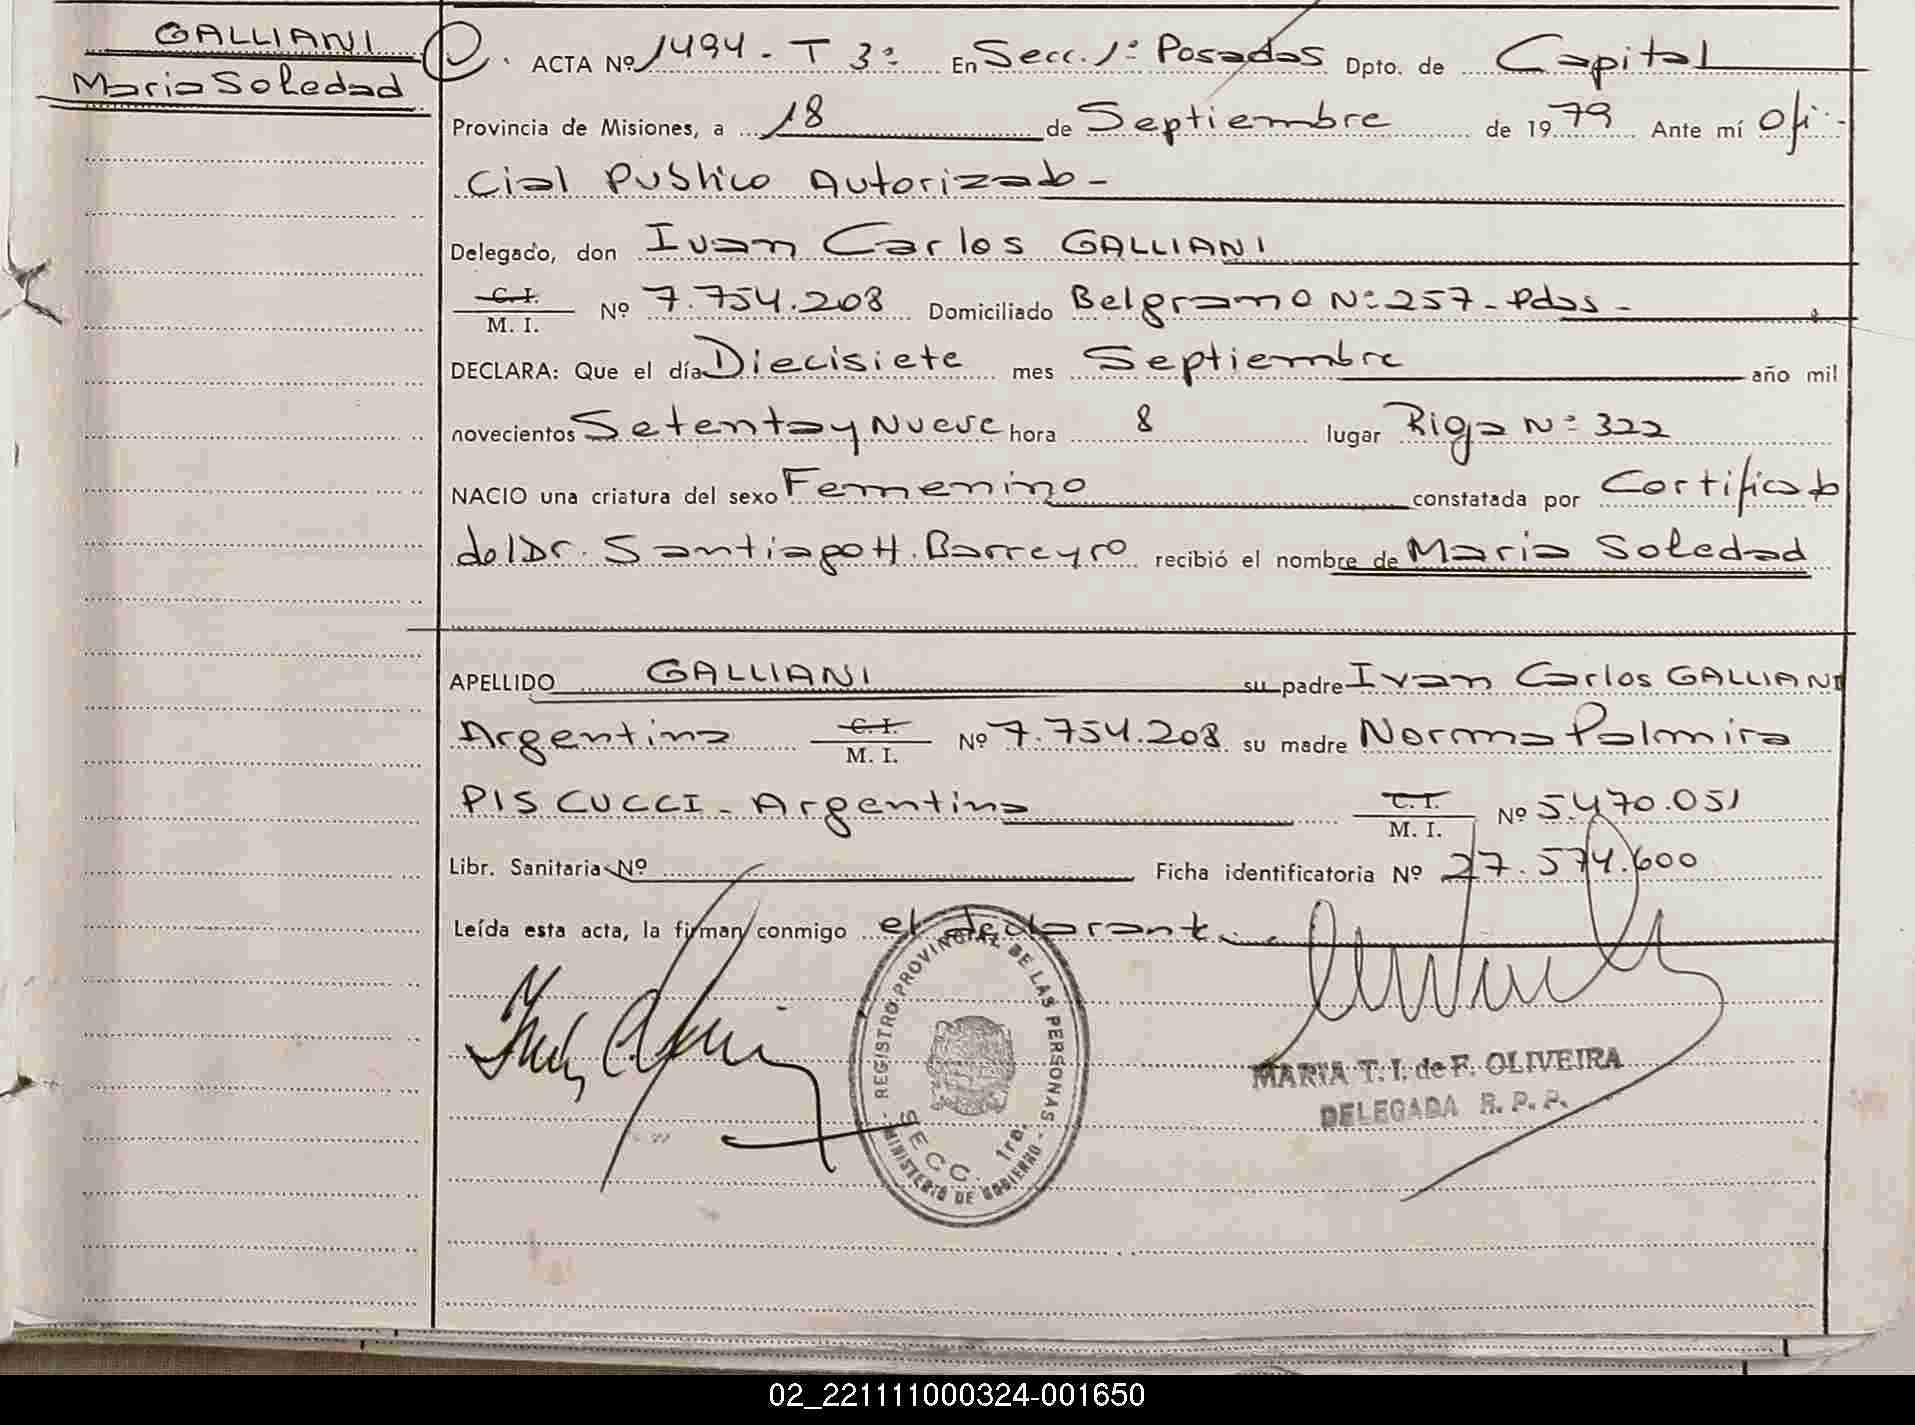 GALLIANI
Maria Soledad
ACTA Nº 1494 - T 3º En Secc. 1º Posadas Dpto. de Capital
Provincia de Misiones, a 18 de Septiembre de 1979 Ante mí Ofi-
cial Publico Autorizado -
Delegado, don Ivan Carlos GALLIANI
C. I.
M. I. Nº 7.754.208 Domiciliado Belgrano Nº 257 - Pdas -
DECLARA: Que el día Diecisiete mes Septiembre año mil
novecientos Setenta y Nueve hora 8 lugar Rioja Nº 322
NACIO una criatura del sexo Femenino constatada por Certificado
del Dr. Santiago H. Barreyro recibió el nombre de Maria Soledad
APELLIDO GALLIANI su padre Ivan Carlos GALLIANI
Argentina C. I.
M. I. Nº 7.754.208 su madre Norma Palmira
PISCUCCI - Argentina C. I.
M. I. Nº 5.470.051
Libr. Sanitaria Nº Ficha identificatoria Nº 27.574.600
Leída esta acta, la firman conmigo el declarante
REGISTRO PROVINCIAL DE LAS PERSONAS
SECC. 1ra.
MINISTERIO DE GOBIERNO
MARIA T. I. de F. OLIVEIRA
DELEGADA R. P. P.
02_221111000324-001650